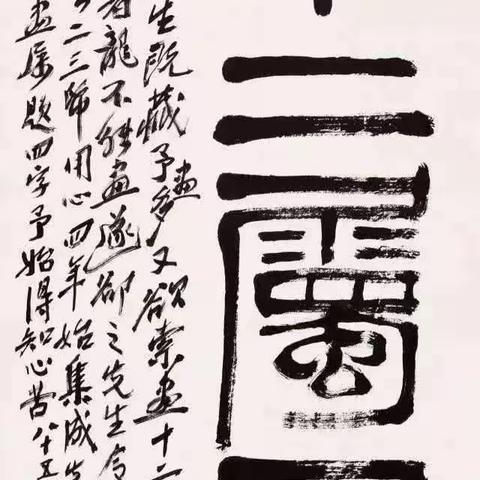 二屬
生既藏予畫多又欲索畫十二
龍不能畫遂卻之先生令
二三師用心四年始集成
畫屬題四字予始得知心苦八十五